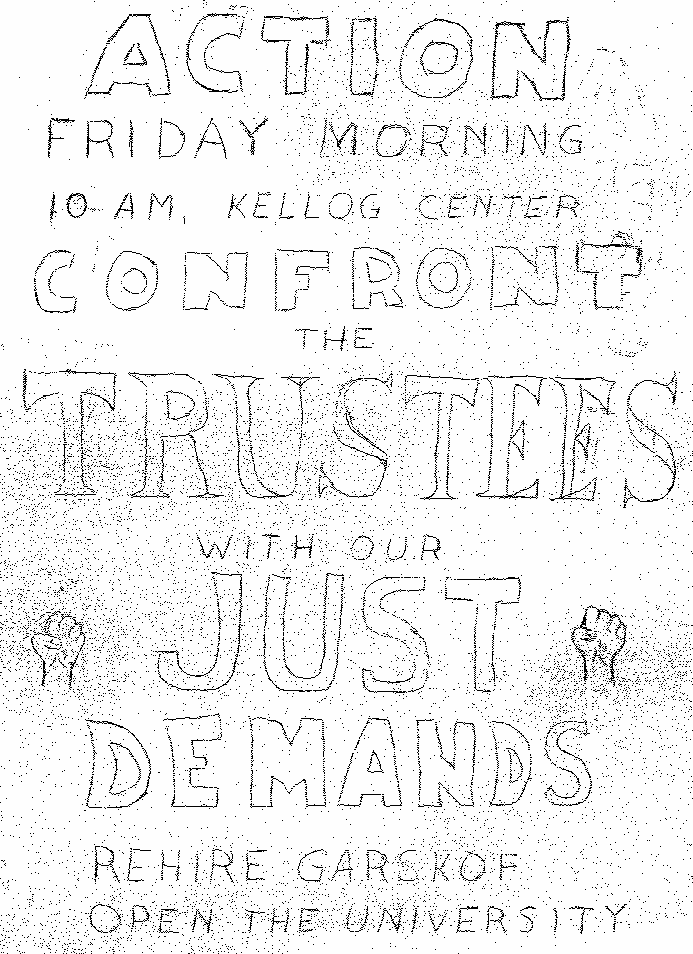 ACTION
FRIDAY MORNING
10 AM, KELLOG CENTER
CONFRONT
THE
TRUSTEES
WITH OUR
JUST
DEMANDS
REHIRE GARSKOF
OPEN THE UNIVERSITY